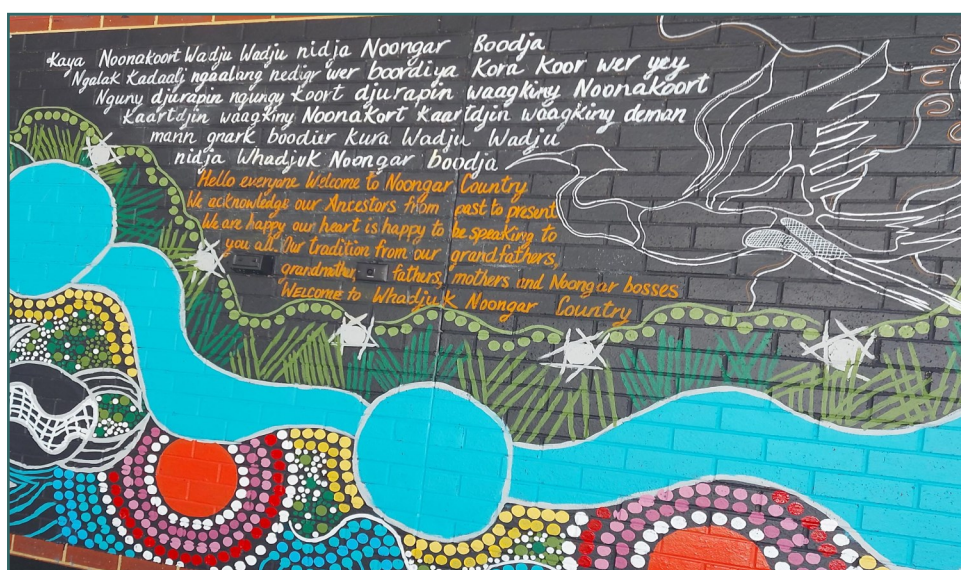 Kaya Noonakoort Wadju Wadju nidja Noongar Boodja
Ngalak Kadaatj ngaalang nedigr wer boordiya Kora Koor wer yey
Nguny djurapin ngungy Koort djurapin waagkiny Noonakoort
Kaartdjin waagkiny Noonakort Kaartdjin waagkiny deman
marin gnark boodier Kura Wadju Wadju
nidja Whadjuk Noongar boodja
Hello everyone Welcome to Noongar Country
We acknowledge our Ancestors from past to present
We are happy our heart is happy to be speaking to
you all. Our tradition from our grandfathers,
grandmother, fathers, mothers and Noongar bosses
Welcome to Whadjuk Noongar Country